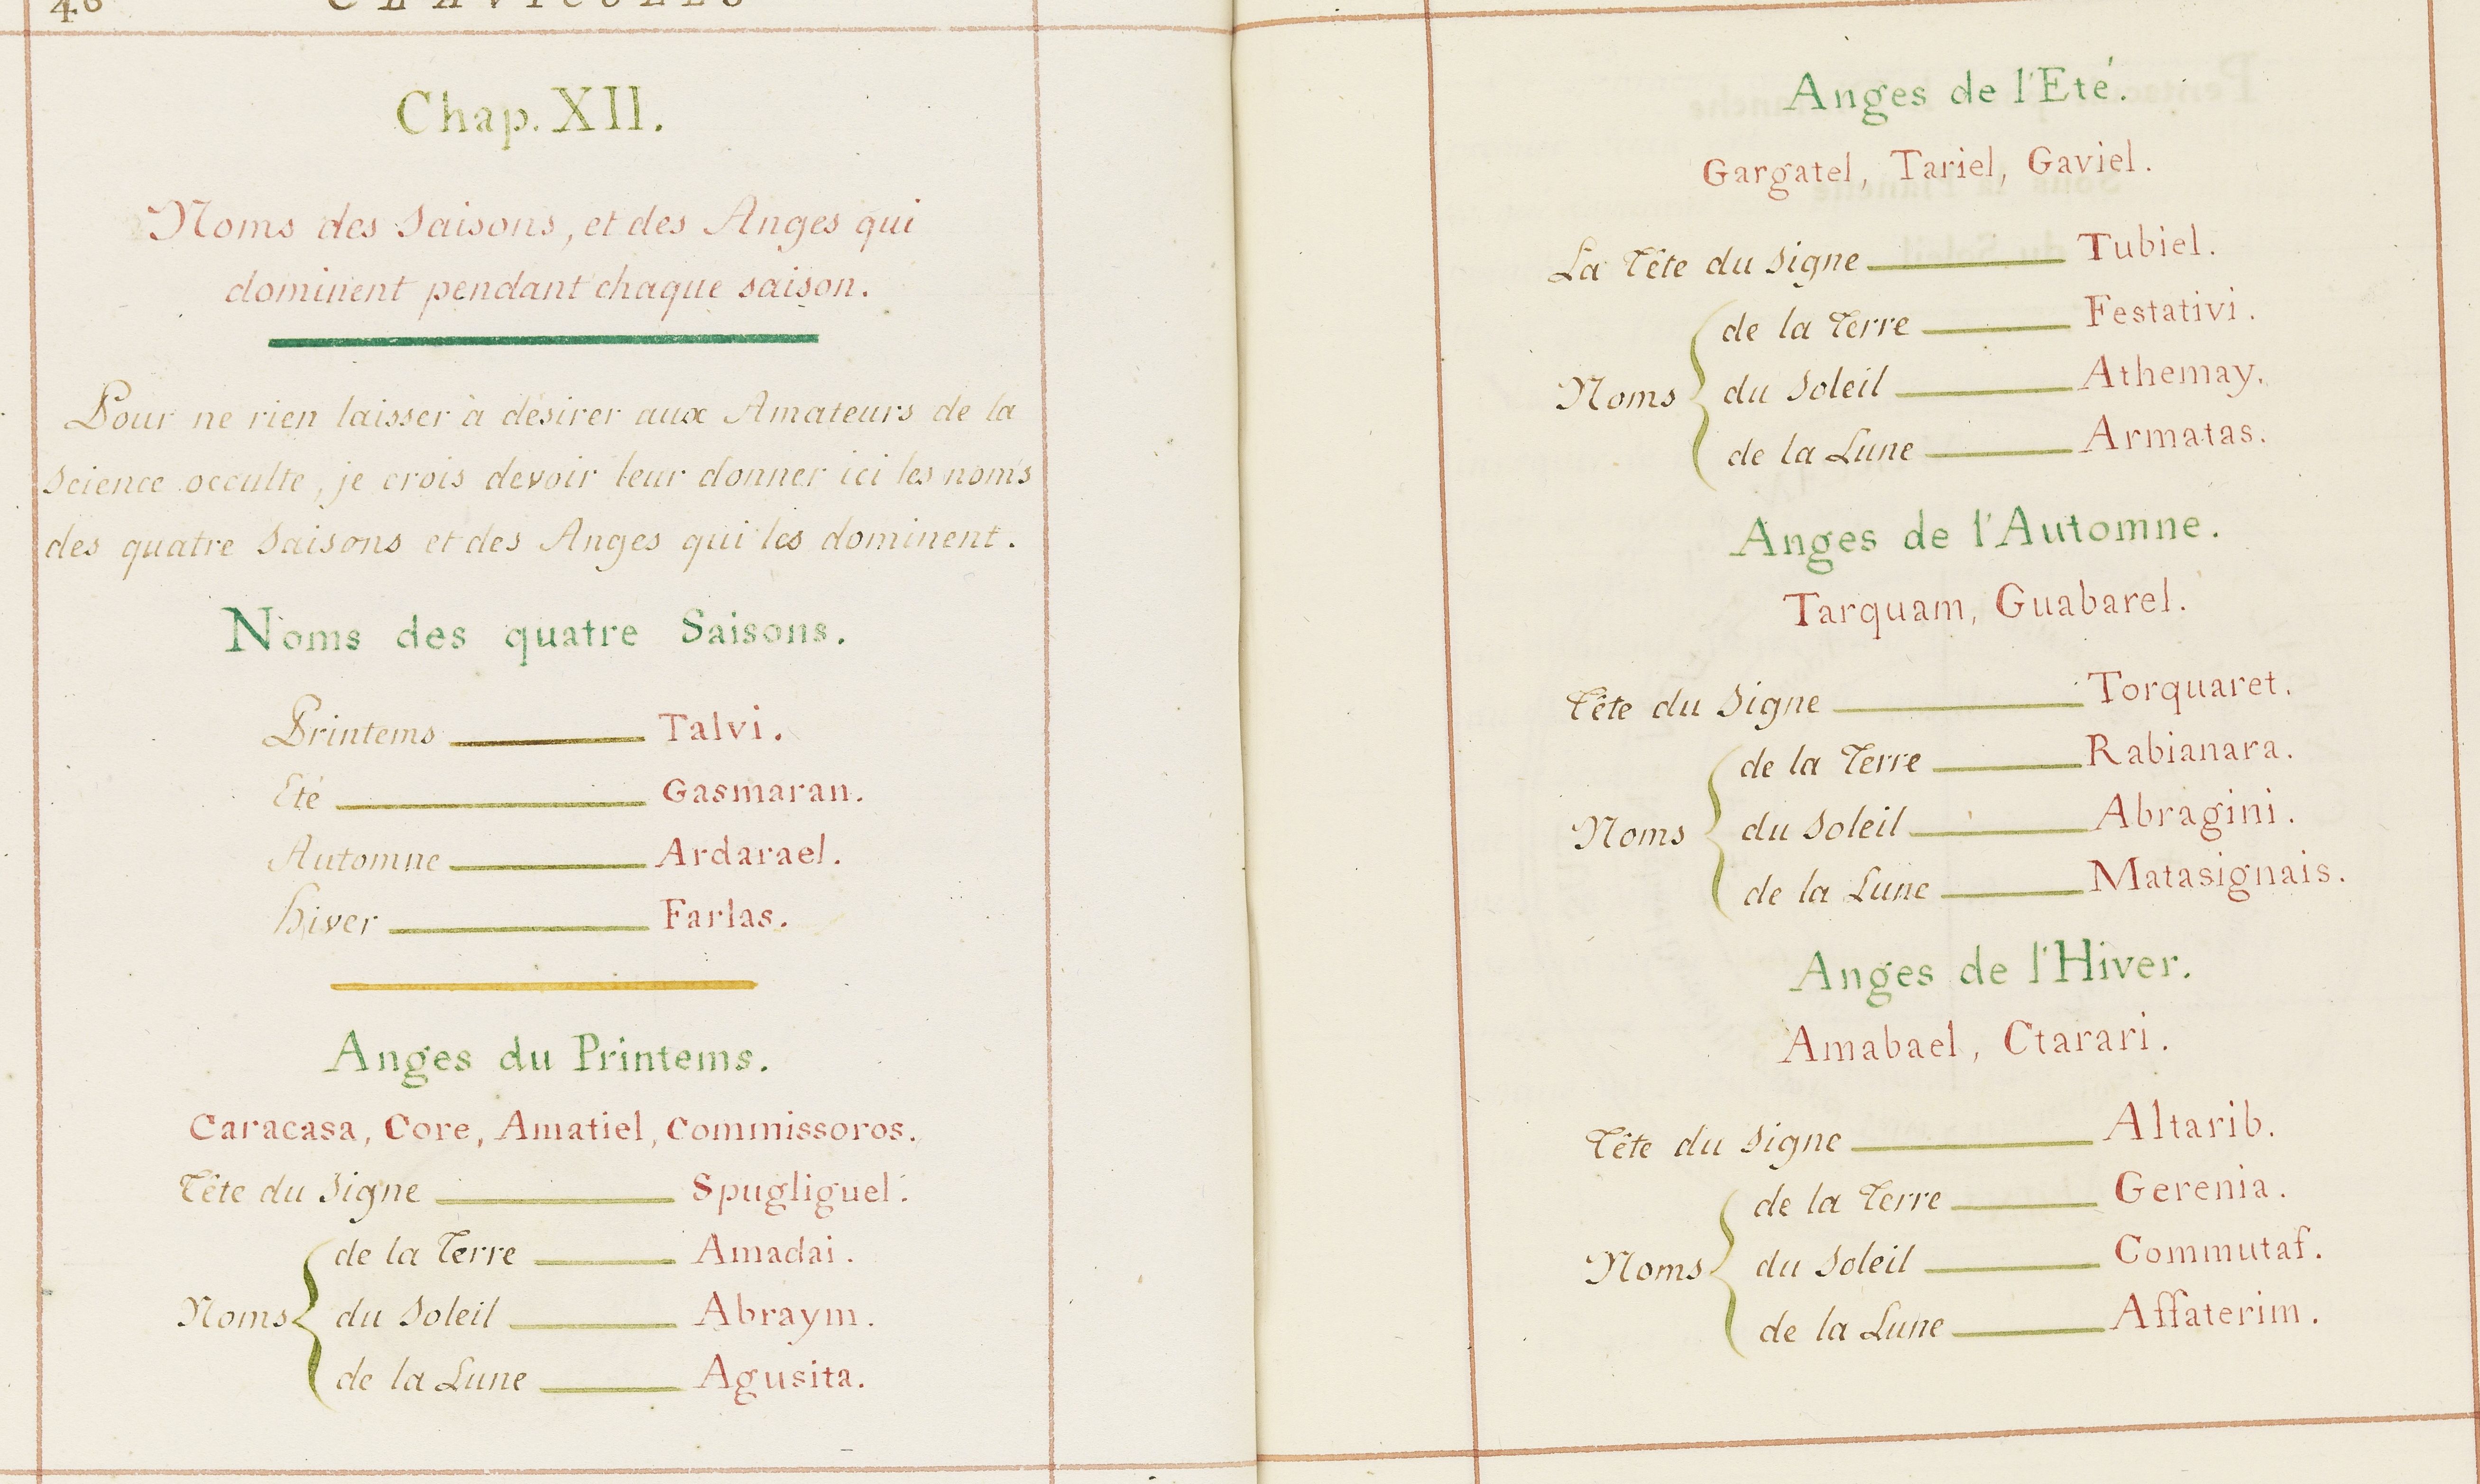 46 CLAVICULES
Chap. XII.
Noms des Saisons, et des Anges qui
dominent pendant chaque saison.
Pour ne rien laisser à désirer aux Amateurs de la
Science occulte, je crois devoir leur donner ici les noms
des quatre Saisons et des Anges qui les dominent.
Noms des quatre Saisons.
Printems Talvi.
Eté Gasmaran.
Automne Ardarael.
hiver Farlas.
Anges du Printems.
Caracasa, Core, Amatiel, Commissoros.
Tête du Signe Spugliguel.
de la Terre Amadai.
Noms du Soleil Abraym.
de la Lune Agusita.
Anges de l'Eté.
Gargatel, Tariel, Gaviel.
La Tête du Signe Tubiel.
de la Terre Festativi.
Noms du Soleil Athemay.
de la Lune Armatas.
Anges de l'Automne.
Tarquam, Guabarel.
Tête du Signe Torquaret.
de la Terre Rabianara.
Noms du Soleil Abragini.
de la Lune Matasignais.
Anges de l'Hiver.
Amabael, Ctarari.
Tête du Signe Altarib.
de la Terre Gerenia.
Noms du Soleil Commutaf.
de la Lune Affaterim.